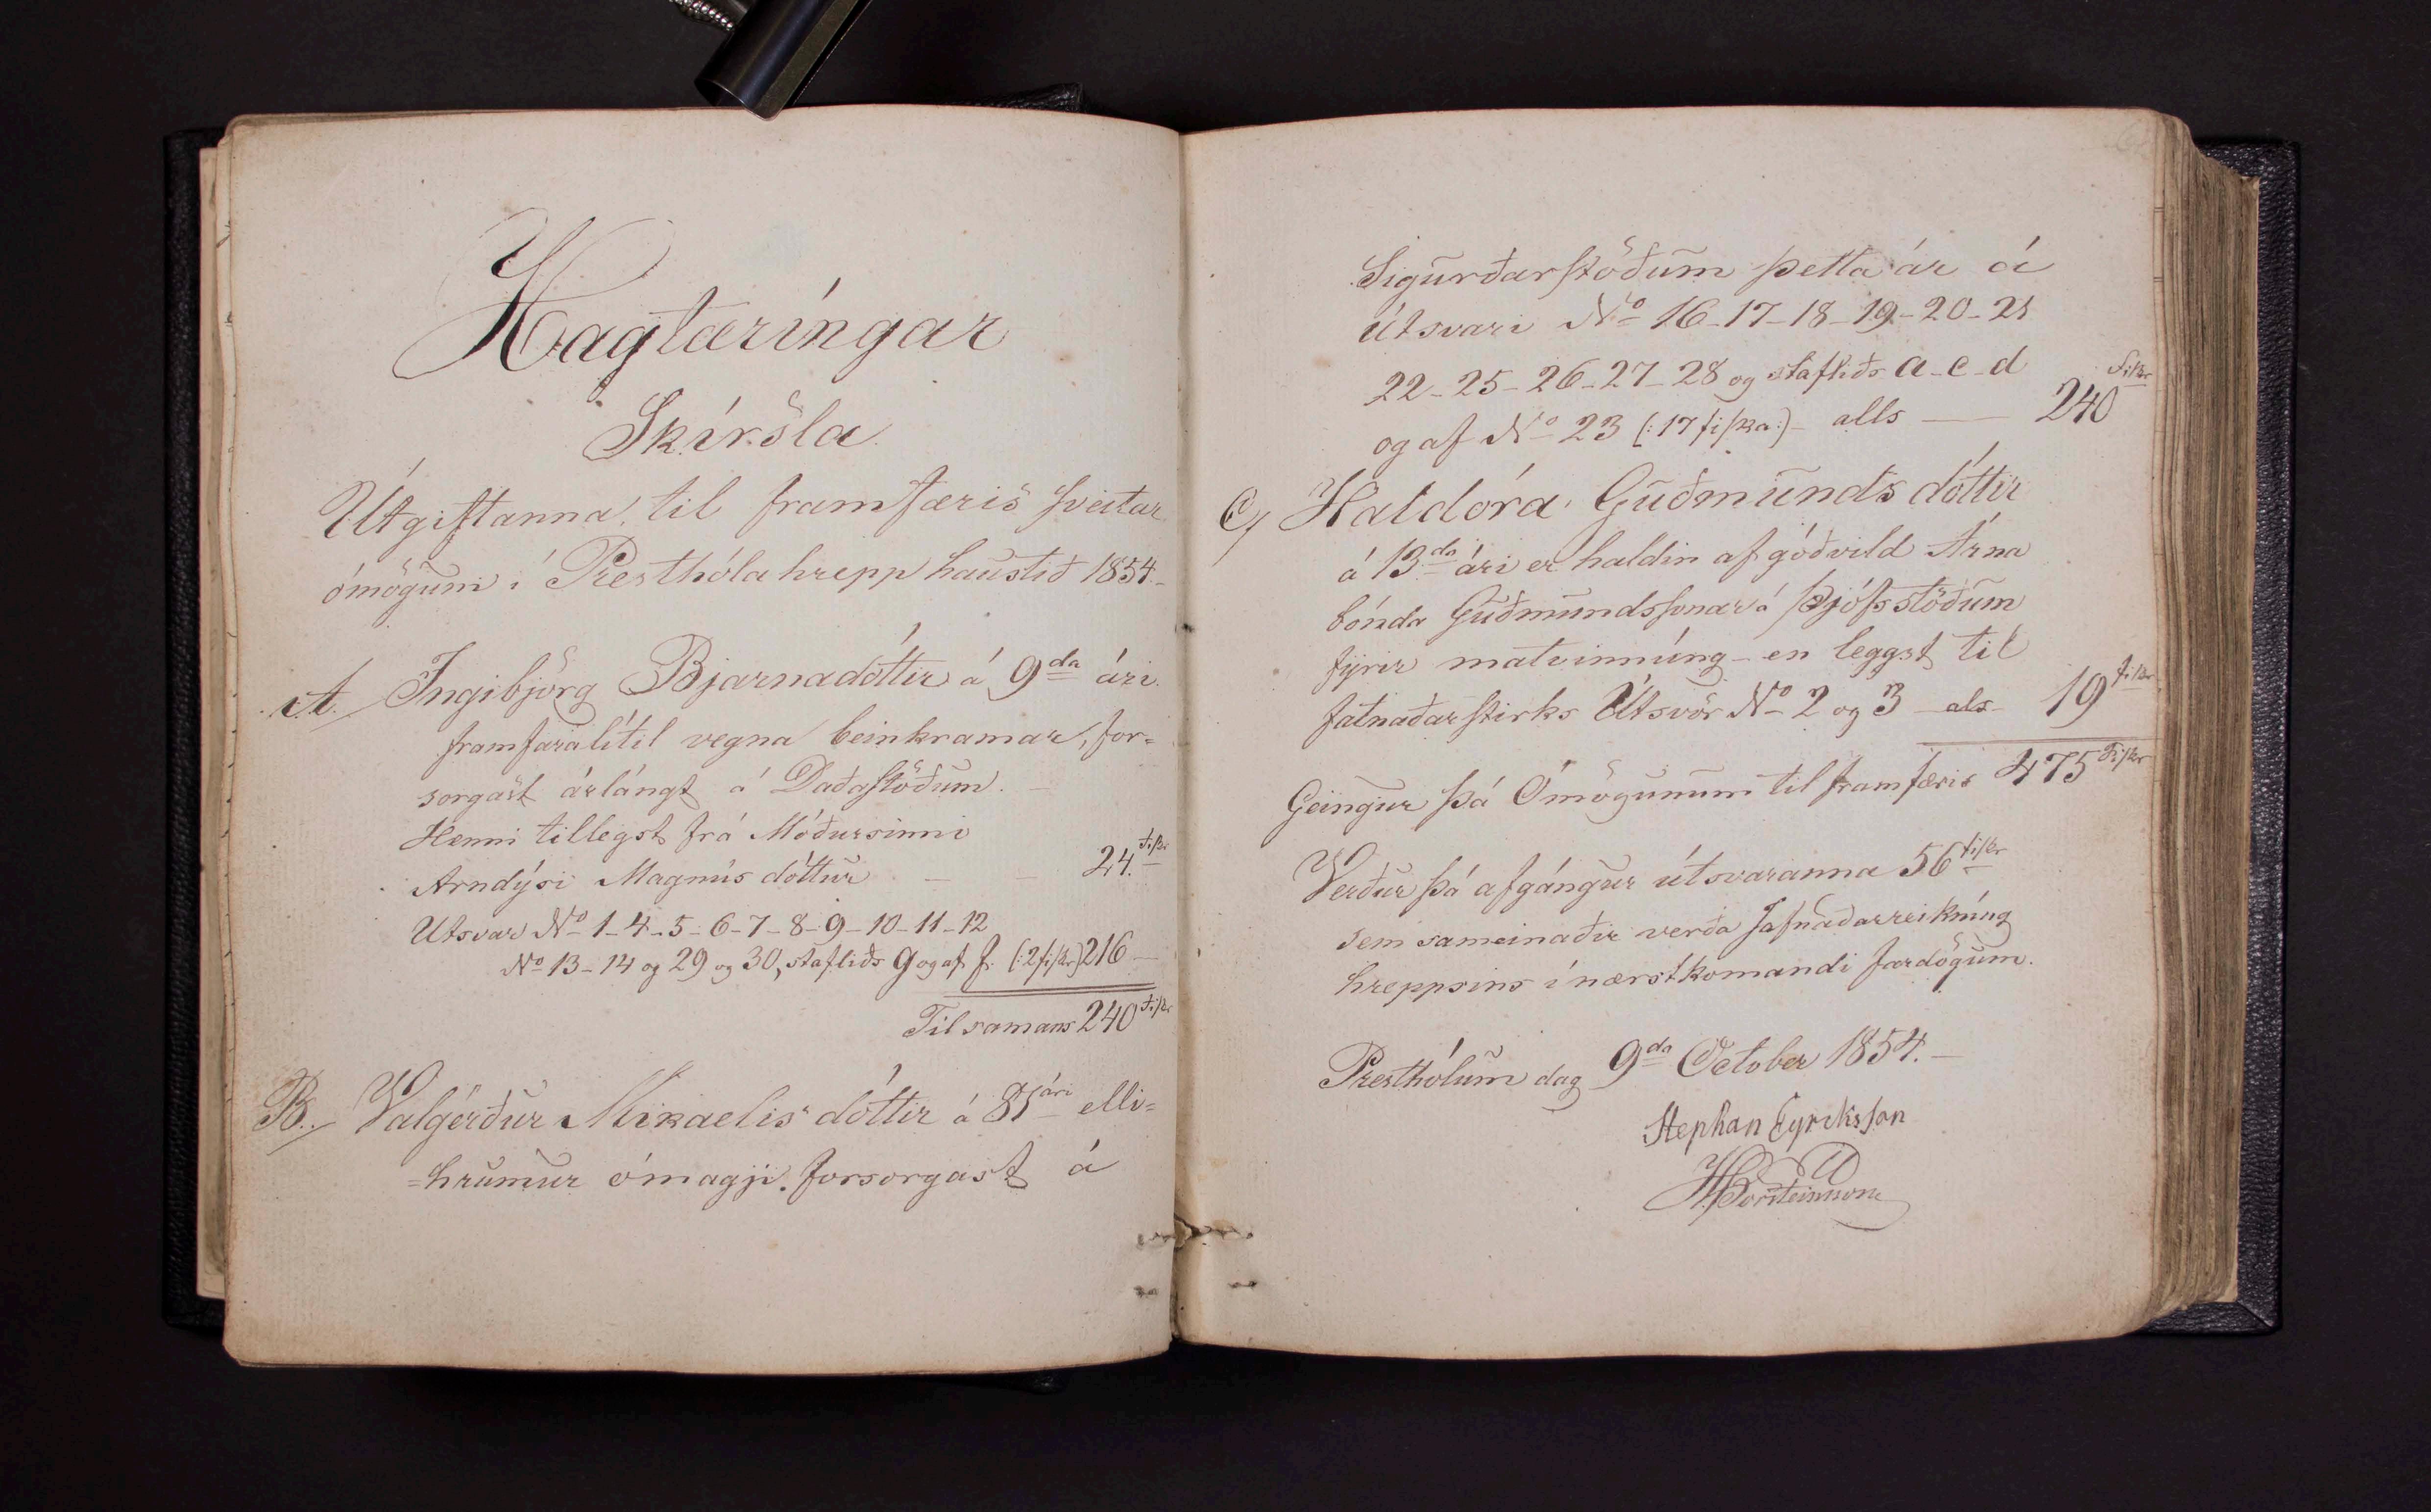 Hagtæríngar
Skírsla
Útgiftanna til framfæris sveitar
ómögum í Presthóla hrepp haustið 1854.
A. Ingibjörg Bjarnadóttir á 9da ári.
framfaralítil vegna beinkramar, for-
sorgast árlángt á Daðastöðum.
Henni tillegst frá Móðursinni
Arndýsi Magnús dóttur — — 24. fiskr
Utsvar No 1-4-5-6-7-8-9-10-11-12
No 13-14 og 29 og 30, stafliðs g og af f. (:2 fiskr) 216 —
Til samans 240 fiskr
B. Valgérður Mikaelis dóttir á 81 ári elli=
=hrumur ómagji. forsorgast á
Sigurðarstöðum þetta ár á
útsvari No 16-17-18-19-20-21
22-25-26-27-28 og stafliðs a-c-d
og af No 23 (:17 fiska:) alls — 240 fiskr
C, Haldóra Guðmunds dóttir
á 13da ári er haldin af góðvild Árna
bónda Guðmundssonar á Þjófsstöðum
fýrir matvinnúng - en leggst til
fatnaðar stirks Útsvör No 2 og 3 - als - 19 fiskr
Geingur þá Ómögunum til framfæris 475 Fiskr
Verður þá afgángur útsvaranna 56 fiskr
sem sameinaðir verða Jafnaðarreikníng
hreppsins í nærstkomandi fardögum.
Presthólum dag 9da October 1854.
Stephan Eyriksson
Þorsteinsson